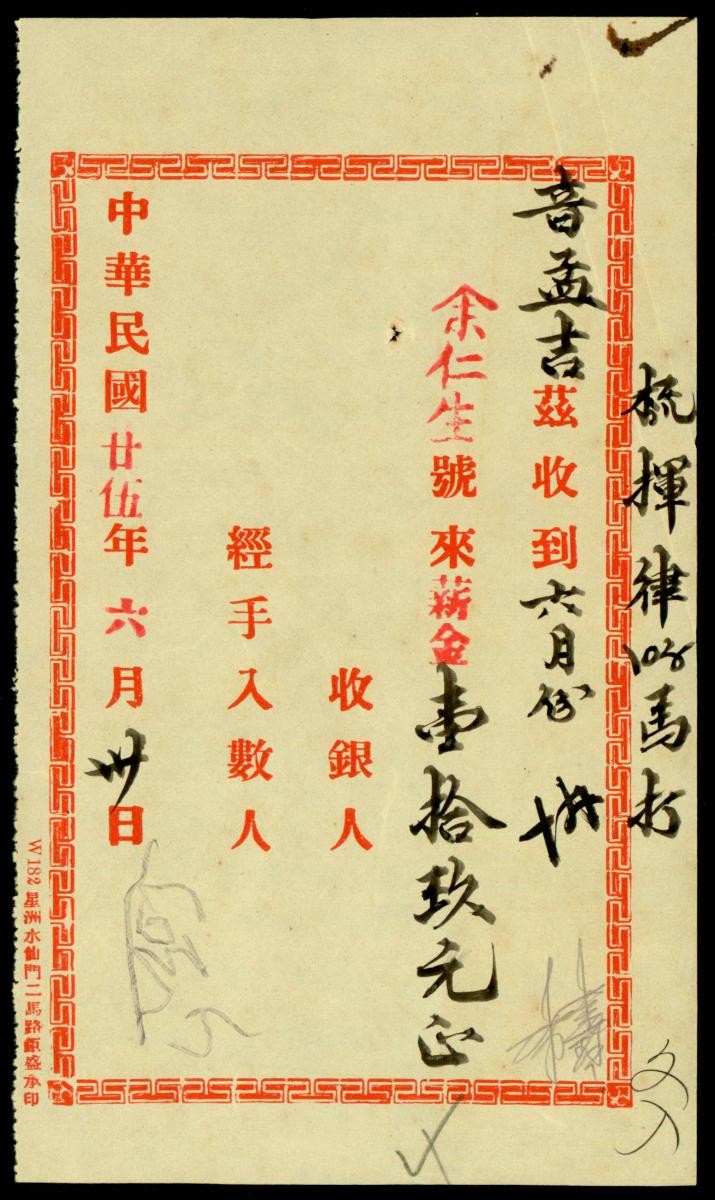 梳揮律108馬打
音孟吉茲收到六月份
余仁生號來薪金壹拾玖元正
收銀人
經手入數人
中華民國廿伍年六月卅日
W 182 星洲水仙門二馬路源盛承印